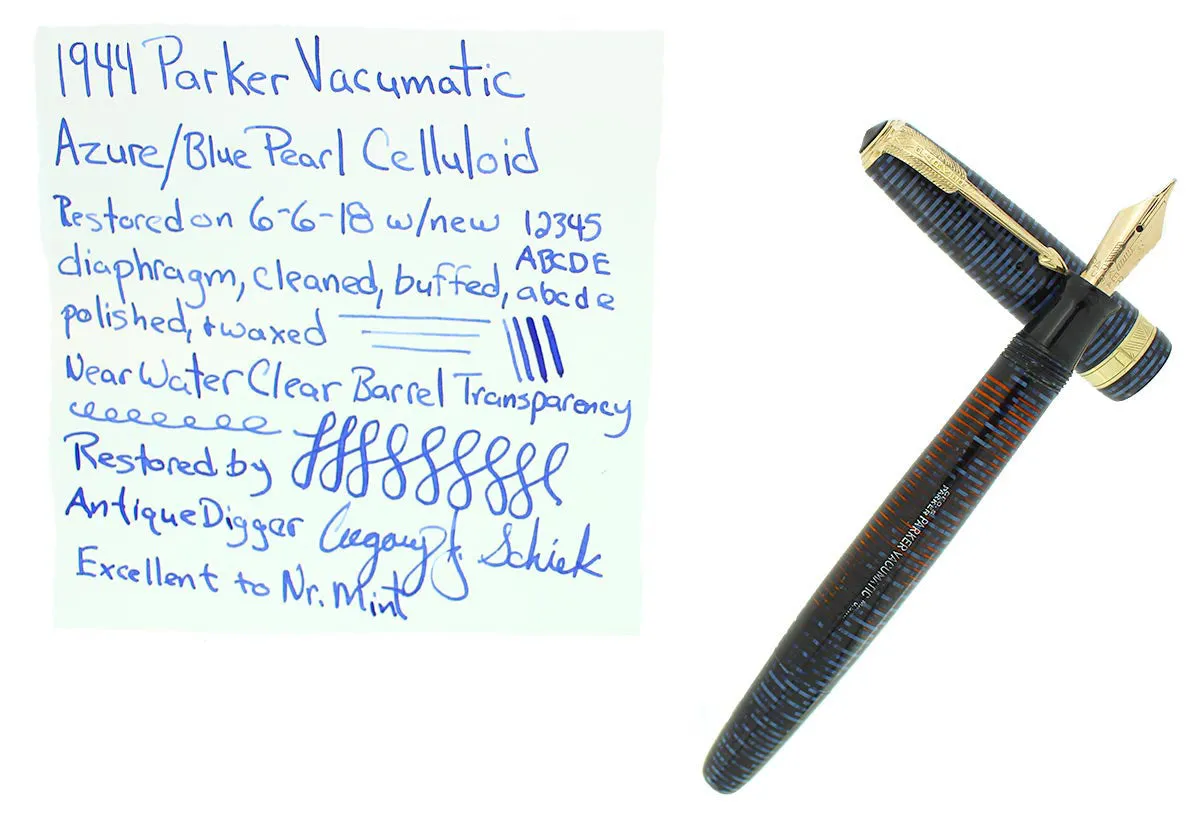 1944 Parker Vacumatic
Azure/Blue Pearl Celluloid
Restored on 6-6-18 w/new 12345
diaphragm, cleaned, buffed, ABCDE
abcde
polished, + waxed
Near Water Clear Barrel Transparency
Restored by
AntiqueDigger Gregory J. Schiek
Excellent to Nr. Mint
PARKER VACUMATIC